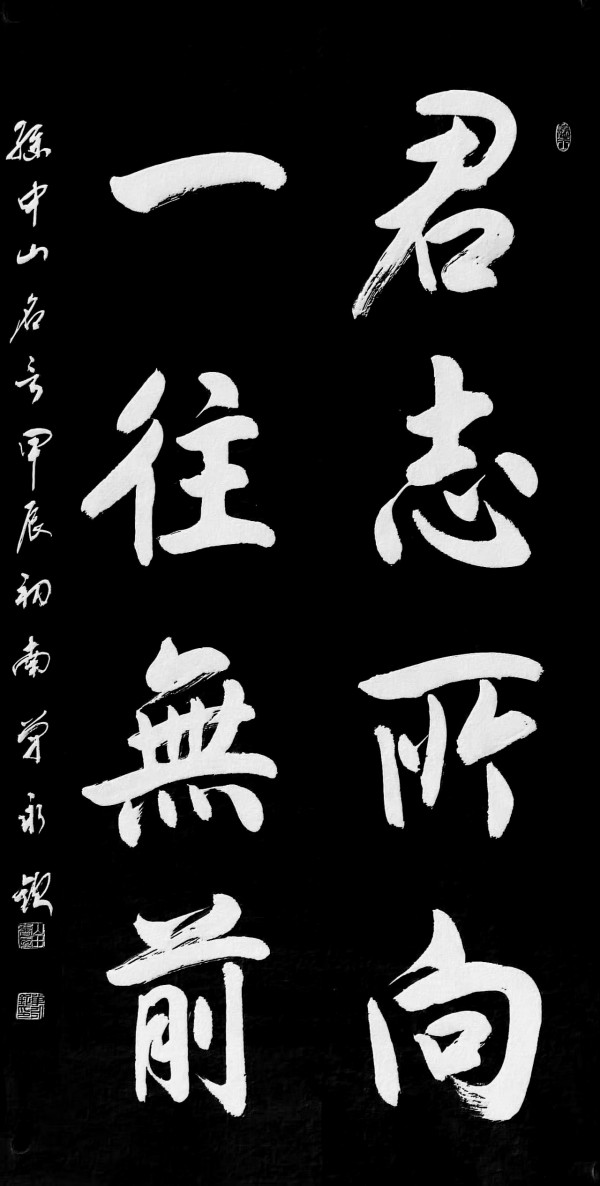 君志所向
一往無前
孫中山名言甲辰初南